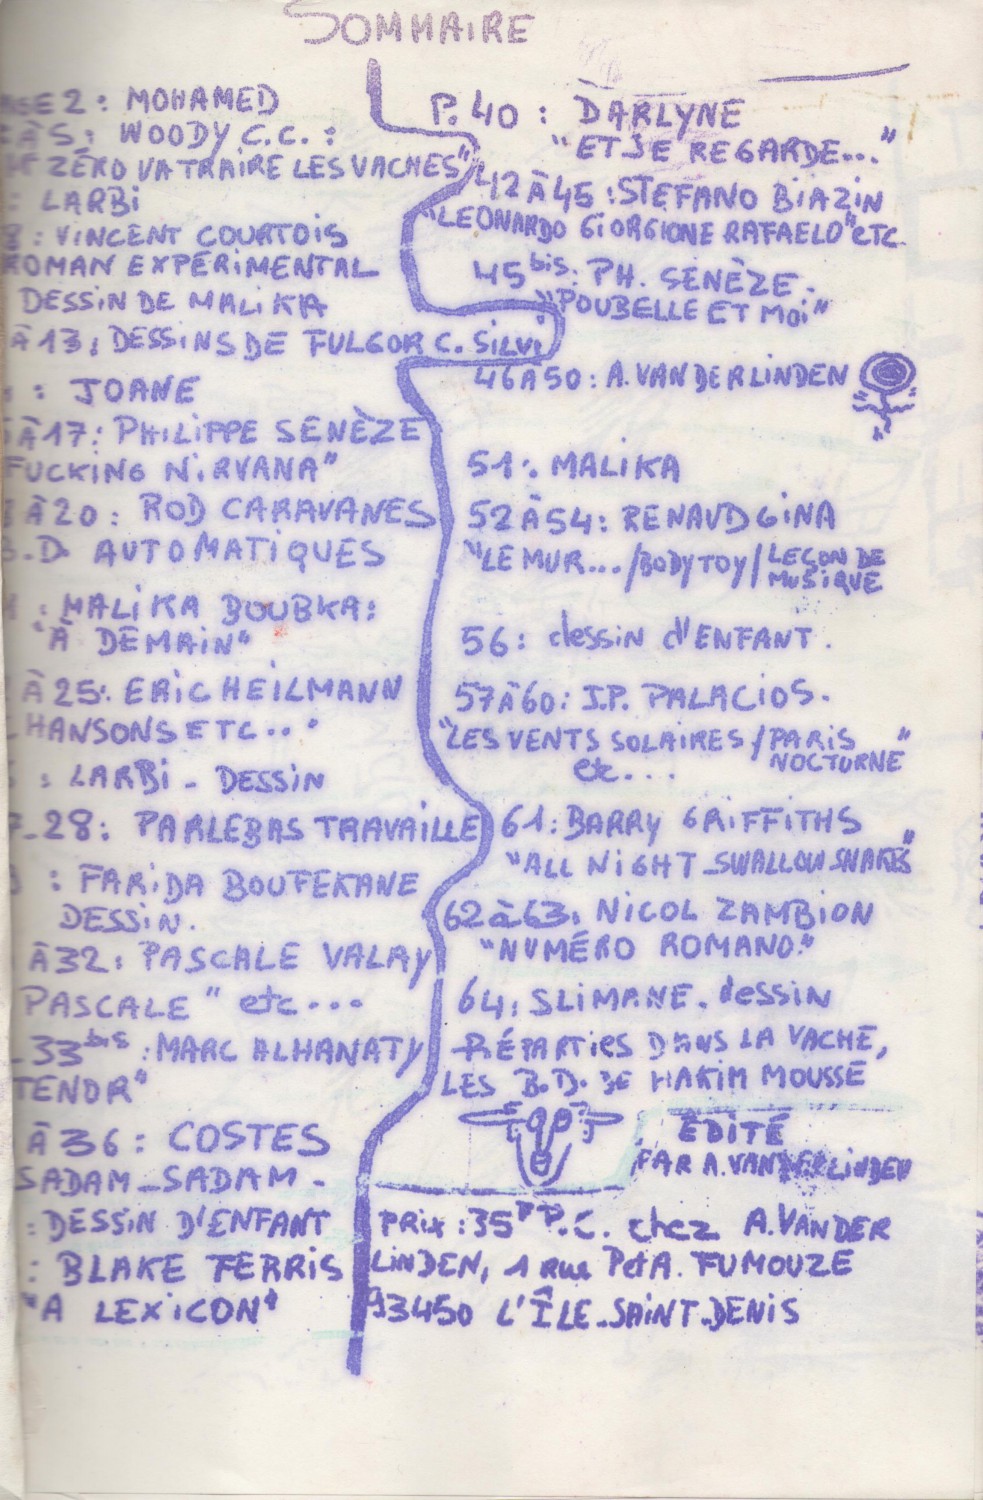 SOMMAIRE
GE 2 : MOHAMED
À 5 : WOODY C.C. :
ZÉRO VA TRAIRE LES VACHES"
: LARBI
8 : VINCENT COURTOIS
ROMAN EXPÉRIMENTAL
DESSIN DE MALIKA
À 13 : DESSINS DE FULGOR C. SILVI
: JOANE
À 17 : PHILIPPE SENÈZE
FUCKING NIRVANA"
À 20 : ROD CARAVANES
B.D. AUTOMATIQUES
: MALIKA BOUBKA :
"À DEMAIN"
À 25 : ERIC HEILMANN
CHANSONS ETC..."
: LARBI - DESSIN
7-28 : PARLEBAS TRAVAILLE
: FARIDA BOUFEKANE
DESSIN.
À 32 : PASCALE VALAY
PASCALE" etc...
-33 bis : MARC ALHANATY
TENOR"
À 36 : COSTES
SADAM-SADAM-
: DESSIN D'ENFANT
: BLAKE FERRIS
"A LEXICON"
P. 40 : DARLYNE
"ET JE REGARDE..."
42 À 45 : STEFANO BIAZIN
"LEONARDO GIORGIONE RAFAELO" ETC.
45 bis : PH. SENÈZE.
"POUBELLE ET MOI"
46 À 50 : A. VAN DER LINDEN
51 : MALIKA
52 À 54 : RENAUD GINA
"LE MUR... / BODY TOY / LEÇON DE
MUSIQUE
56 : dessin d'ENFANT.
57 À 60 : J.P. PALACIOS.
"LES VENTS SOLAIRES / PARIS
NOCTURNE"
etc....
61 : BARRY GRIFFITHS
"ALL NIGHT-SWALLOW SNAKES"
62 à 63 : NICOL ZAMBION
"NUMÉRO ROMANO."
64 : SLIMANE. dessin
RÉPARTIES DANS LA VACHE,
LES B.D. DE HAKIM MOUSSE
ÉDITÉ
PAR A. VAN DER LINDEN
PRIX : 35 FF P.C. chez A. VAN DER
LINDEN, 1 rue Pet A. FUMOUZE
93450 L'ÎLE-SAINT-DENIS